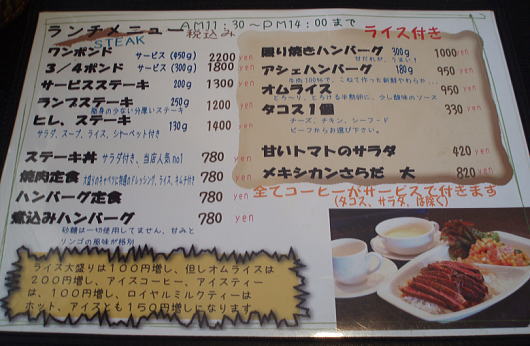 ランチメニュー AM11:30～PM14:00まで
STEAK 税込み
ワンポンド サービス(450g) 2200 yen
3/4ポンド サービス(300g) 1800 yen
サービスステーキ 200g 1300 yen
ランプステーキ 250g 1200 yen
脂身の少ない分厚いステーキ
ヒレ、ステーキ 130g 1400 yen
サラダ、スープ、ライス、シャーベット付き
ステーキ丼 サラダ付き、当店人気no1 780 yen
焼肉定食 大盛りのキャベツに特製のドレッシング、ライス、キムチ付き 780 yen
ハンバーグ定食 780 yen
煮込みハンバーグ 780 yen
砂糖は一切使用してません、甘みと
リンゴの風味が格別
ライス大盛りは100円増し、但しオムライスは
200円増し、アイスコーヒー、アイスティー
は、100円増し、ロイヤルミルクティーは
ホット、アイスとも150円増しになります
ライス付き
照り焼きハンバーグ 300g 1000 yen
甘だれが、うまい!
アシェハンバーグ 180g 950 yen
牛肉100%で、こねて作った新鮮やわらか、、、
オムライス 950 yen
とろ～り、とろける半熟卵に、少し酸味のソース
タコス1個 330 yen
チーズ、チキン、シーフード
ビーフからお選び下さい。
甘いトマトのサラダ 420 yen
メキシカンさらだ 大 820 yen
全てコーヒーがサービスで付きます
(タコス、サラダ、は除く)